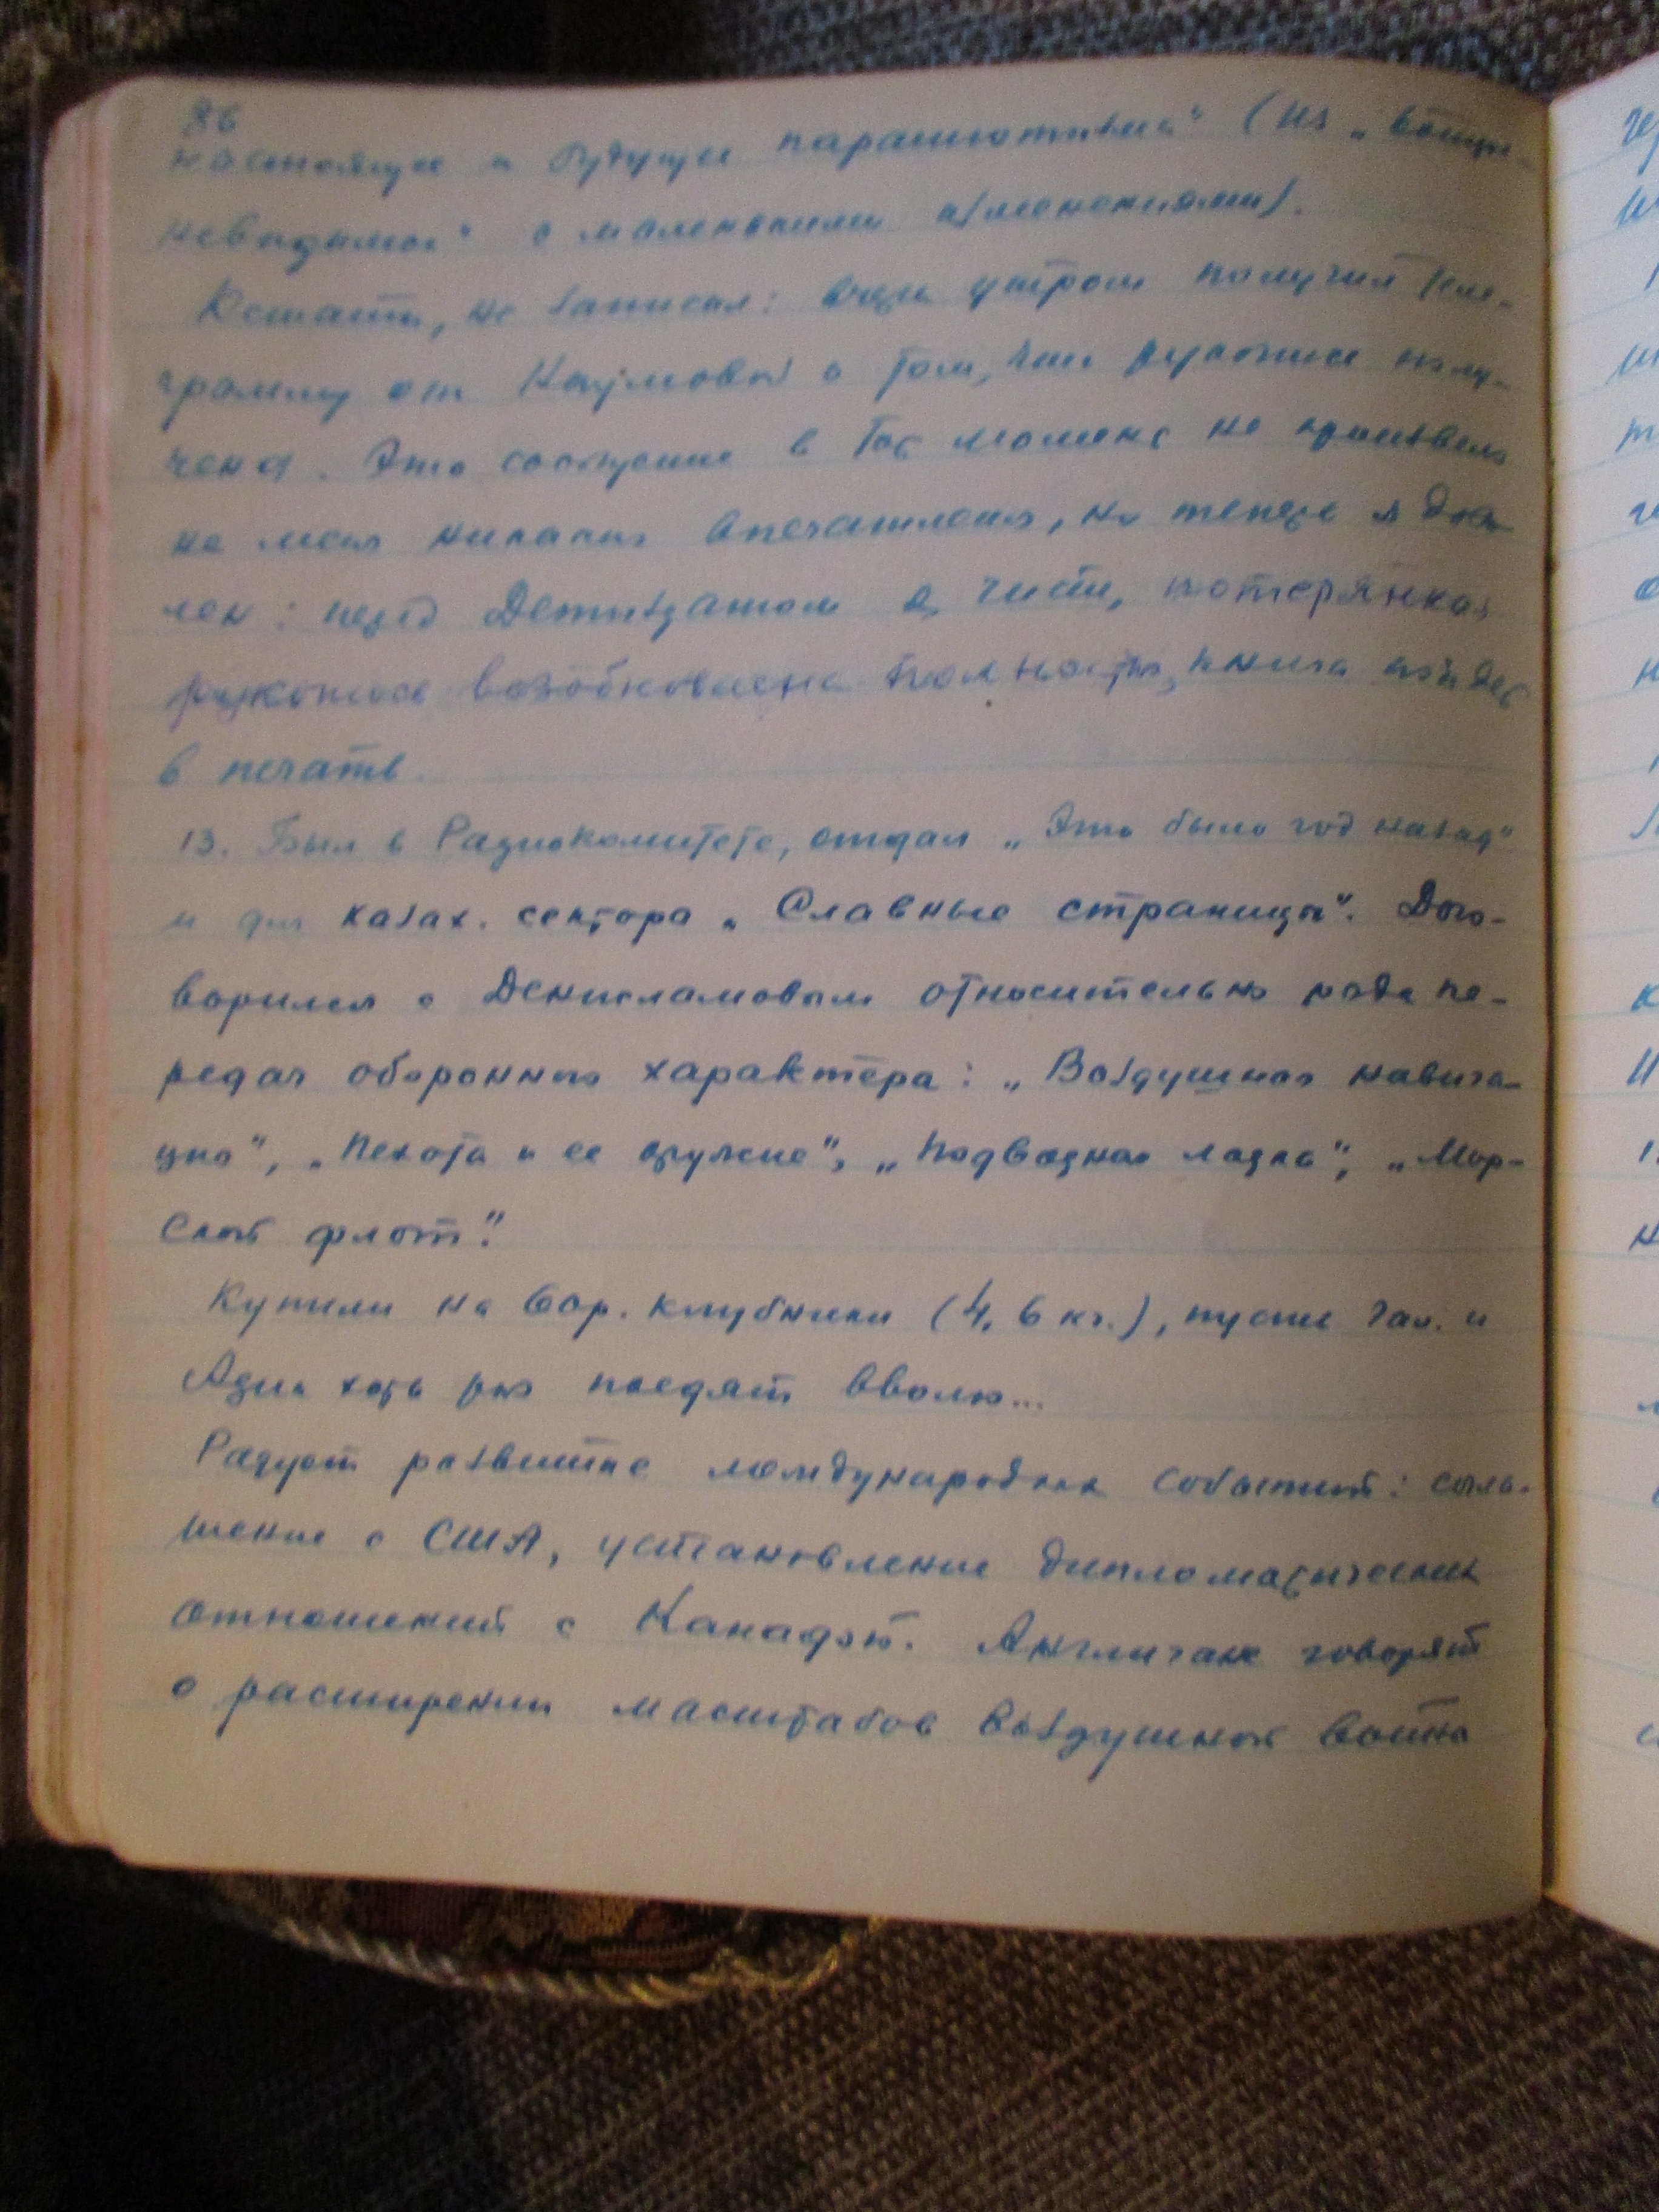 86
настоящее и будущее парашютизма" (из „Бойцы-
невидимки" с маленькими изменениями).
Кстати, не записал: вчера утром получил теле-
грамму от Наумовой о том, что рукопись полу-
чена. Это сообщение в тот момент не произвело
на меня никакого впечатления, но теперь я дово-
лен: перед Детиздатом я чист, потерянная
рукопись возобновлена полностью, книга пойдет
в печать.
13. Был в Радиокомитете, отдал „Это было год назад"
и для казах. сектора „Славные страницы". Дого-
ворился с Денисламовым относительно ряда пе-
редач оборонного характера: „Воздушная навига-
ция", „Пехота и ее оружие", „Подводная лодка", „Мор-
ской флот".
Купили на бар. клубники (4,6 кг.), пусть Гал. и
Адик хоть раз поедят вволю...
Радует развитие международных событий: согла-
шение с США, установление дипломатических
отношений с Канадой. Англичане говорят
о расширении масштабов воздушной войны